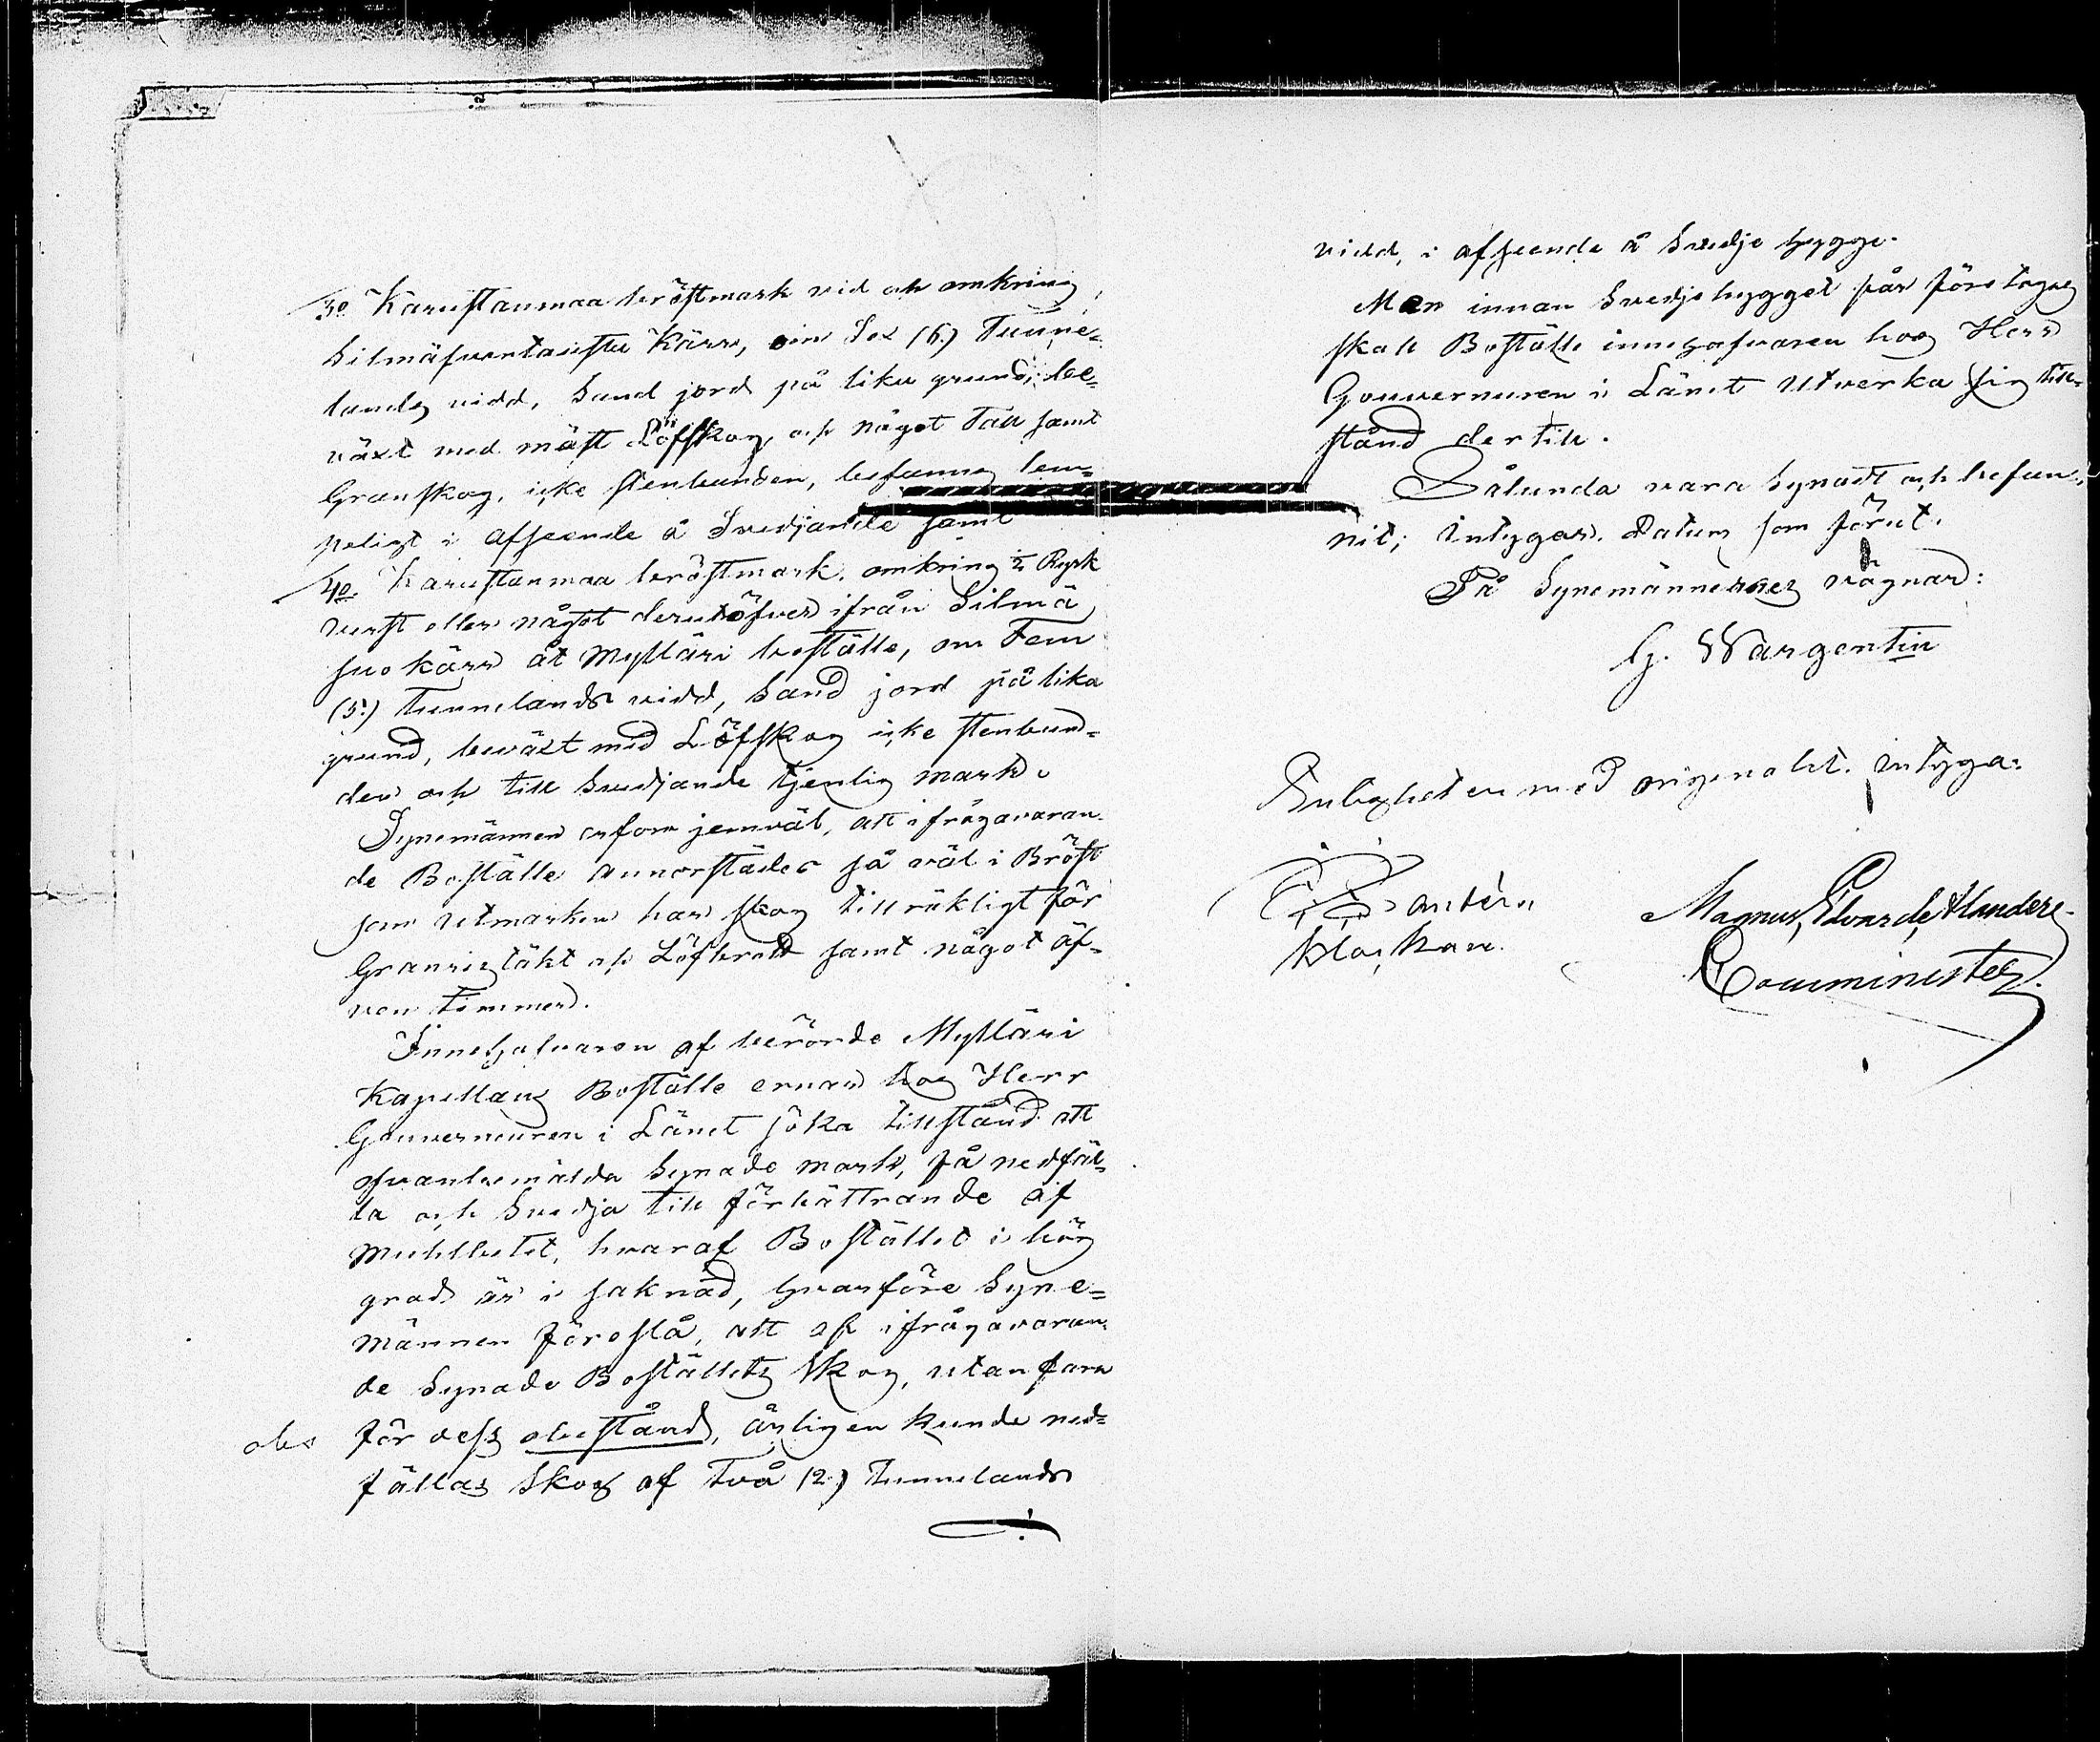 3o Karustanmaa bröstmark vid och omkring
Silmäfvantausta Kärr, om Sex (6.) Tunne-
lands vidd, Sand jord på lika grund, be-
växt med mäst Löfskog, och något Tall samt
Granskog, icke stenbunden, befanns lem-
peligt i afseende å Svedjande samt
4o Karustanmaa bröstmark, omkring ½ Rysk
Verst eller något derutöfver ifrån Silmä
suo kärr åt Mylläri boställe, om Fem
(5.) Tunnelands vidd, Sand jord på lika
grund, beväxt med Löfskog icke stenbun-
den och till Svedjande tjenlig mark.
Synemännen erforo jemväl, att ifrågavaran-
de Boställe annorstädes så väl i Bröst
som Utmarken har skog tillräkligt för
Granristäkt och Löfbrott samt något äf-
ven timmer.
Innehafvaren af berörde Mylläri
Kapellans Boställe ernar hos Herr
Gouverneuren i Länet söka tillstånd att
ofvanbemälda Synade mark, få nedfäl-
la och Svedja till förbättrande af
Muhlbetet, hvaraf Bostället i hög
grad är i saknad, hvarföre Syne-
männen föreslå, att af ifrågavaran-
de Synade Boställets Skog, utan fara
obs för dess obestånd, årligen kunde ned-
fällas Skog af Två (2.) Tunnelands
vidd, i afseende å Svedje hygge.
Men innan Svedjehygget får företagas
skall Boställs innehafvaren hos Herr
Gouverneuren i Länet Utverka sig till-
stånd dertill.
Sålunda vara Synadt och befun-
nit; Intygar. Datum som förut.
På Synemännernes vägnar:
G. Wargentin
Enligheten med originalet intyga:
Klockare.
Magnus Edvard Alandere
Comminister.